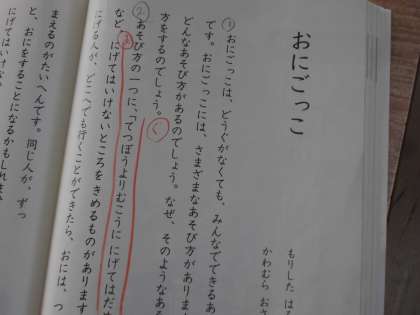 おにごっこ
もりした は
かわむら お
①おにごっこは、どうぐがなくても、みんなでできるあ
です。おにごっこには、さまざまなあそび方があります
どんなあそび方があるのでしょう。なぜ、そのようなあ
方をするのでしょう。
②あそび方の一つに、「てつぼうよりむこうに にげてはだ
など、にげてはいけないところをきめるものがあります
にげる人が、どこへでも行くことができたら、おには、つ
まえるのがたいへんです。同じ人が、ずっ
と、おにをすることになるかもしれま
にげてはいけな